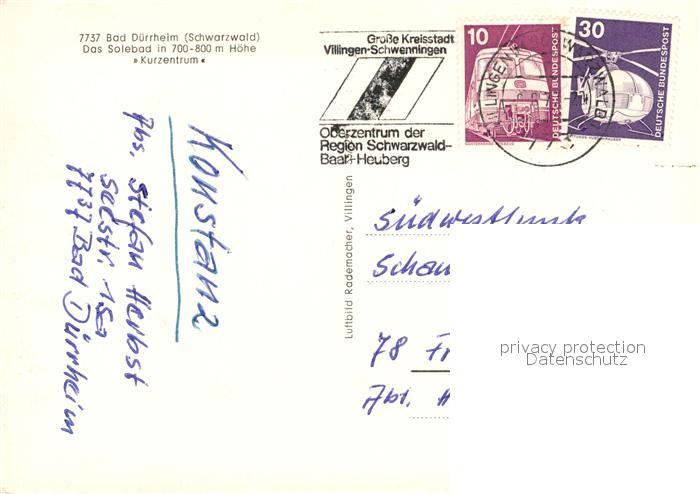 7737 Bad Dürrheim (Schwarzwald)
Das Solebad in 700-800 m Höhe
»Kurzentrum«
Große Kreisstadt
Villingen-Schwenningen
Oberzentrum der
Region Schwarzwald-
Baar-Heuberg
10
DEUTSCHE BUNDESPOST
30
DEUTSCHE BUNDESPOST
Konstanz
Abs. Stefan Herbst
Seestr. 15a
7737 Bad Dürrheim
Luftbild Rademacher, Villingen
Südwestfunk
78
Abt.
privacy protection
Datenschutz